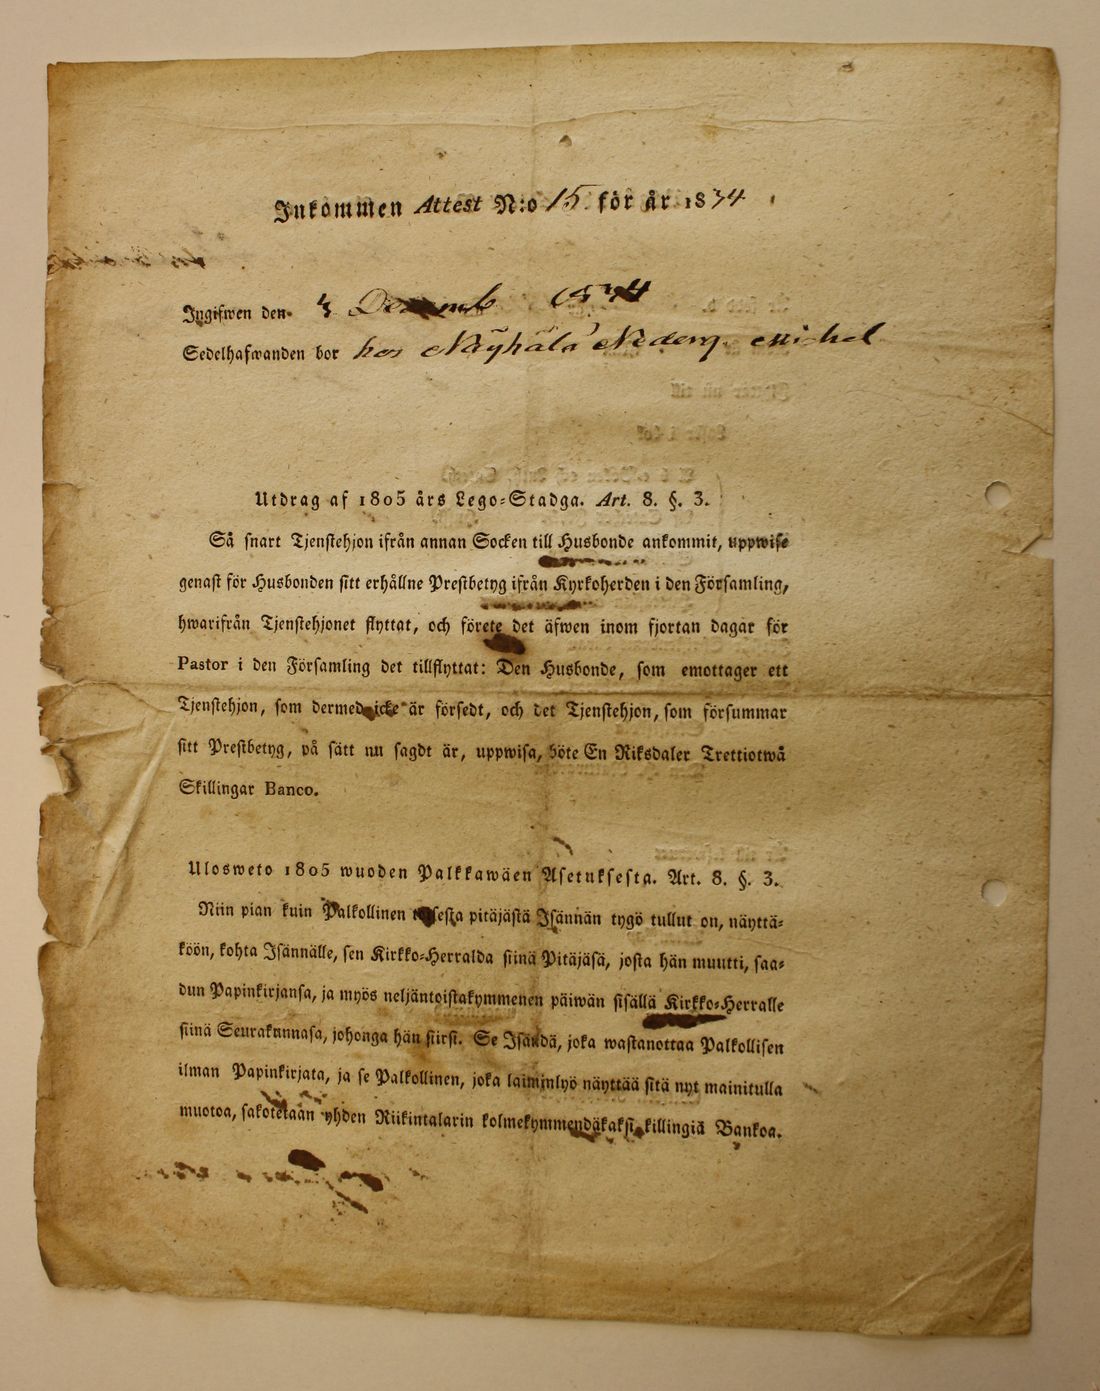 Inkommen Attest N:o 15 för år 1834
Ingifwen den 3 Decemb 1834
Sedelhafwanden bor hos Näyhälä Michel
Utdrag af 1805 års Lego-Stadga. Art. 8. §. 3.
Så snart Tjenstehjon ifrån annan Socken till Husbonde ankommit, uppwise
genast för Husbonden sitt erhållne Prestbetyg ifrån Kyrkoherden i den Församling,
hwarifrån Tjenstehjonet flyttat, och förete det äfwen inom fjortan dagar för
Pastor i den Församling det tillflyttat: Den Husbonde, som emottager ett
Tjenstehjon, som dermed icke är försedt, och det Tjenstehjon, som försummar
sitt Prestbetyg, på sätt nu sagdt är, uppwisa, böte En Riksdaler Trettiotwå
Skillingar Banco.
Ulosweto 1805 wuoden Palkkawäen Asetuksesta. Art. 8. §. 3.
Niin pian kuin Palkollinen toisesta pitäjästä Isännän tygö tullut on, näyttä-
köön, kohta Isännälle, sen Kirkko-Herralda siinä Pitäjäsä, josta hän muutti, saa-
dun Papinkirjansa, ja myös neljäntoistakymmenen päiwän sisällä Kirkko-Herralle
siinä Seurakunnasa, johonga hän siirsi. Se Isändä, joka wastanottaa Palkollisen
ilman Papinkirjata, ja se Palkollinen, joka laiminlyö näyttää sitä nyt mainitulla
muotoa, sakotetaan yhden Riikintalarin kolmekymmendäkaksi killingiä Bankoa.